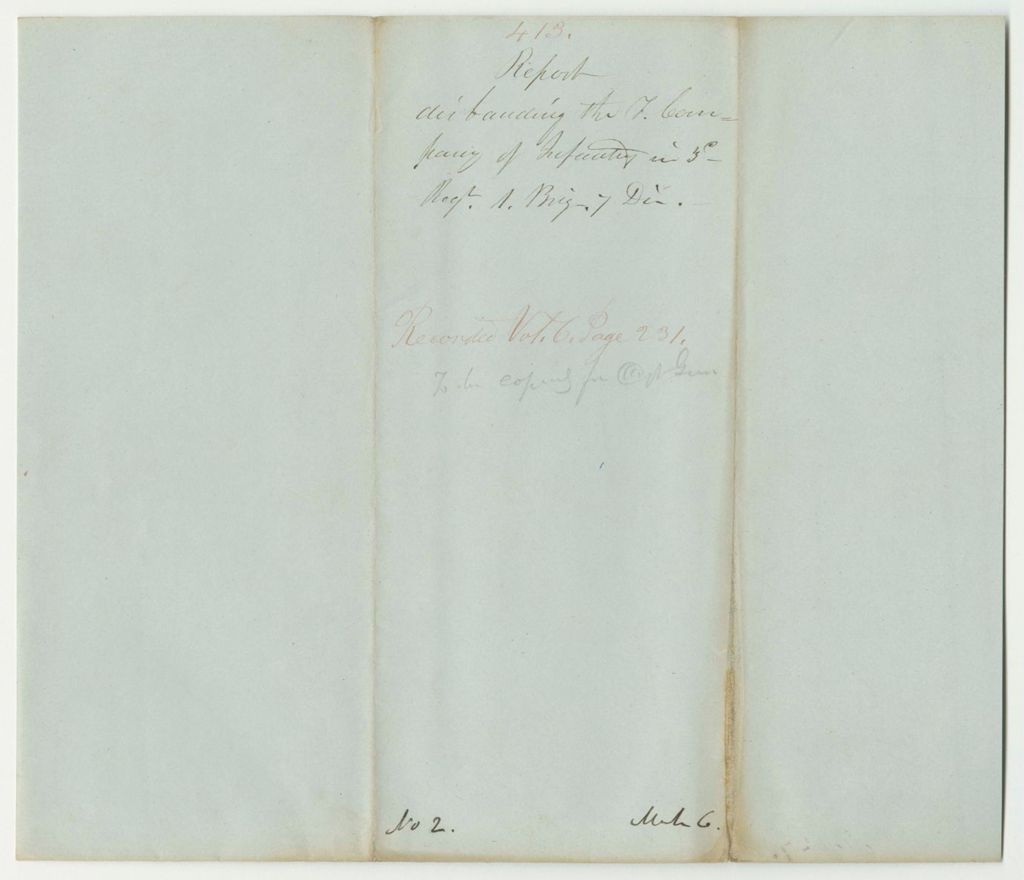 413.
Report
disbanding the F. Com=
pany of Infantry in 3d
Regt. 1. Brig. 7 Div.
Recorded Vol. 6. Page 231.
To be copied for
No 2.